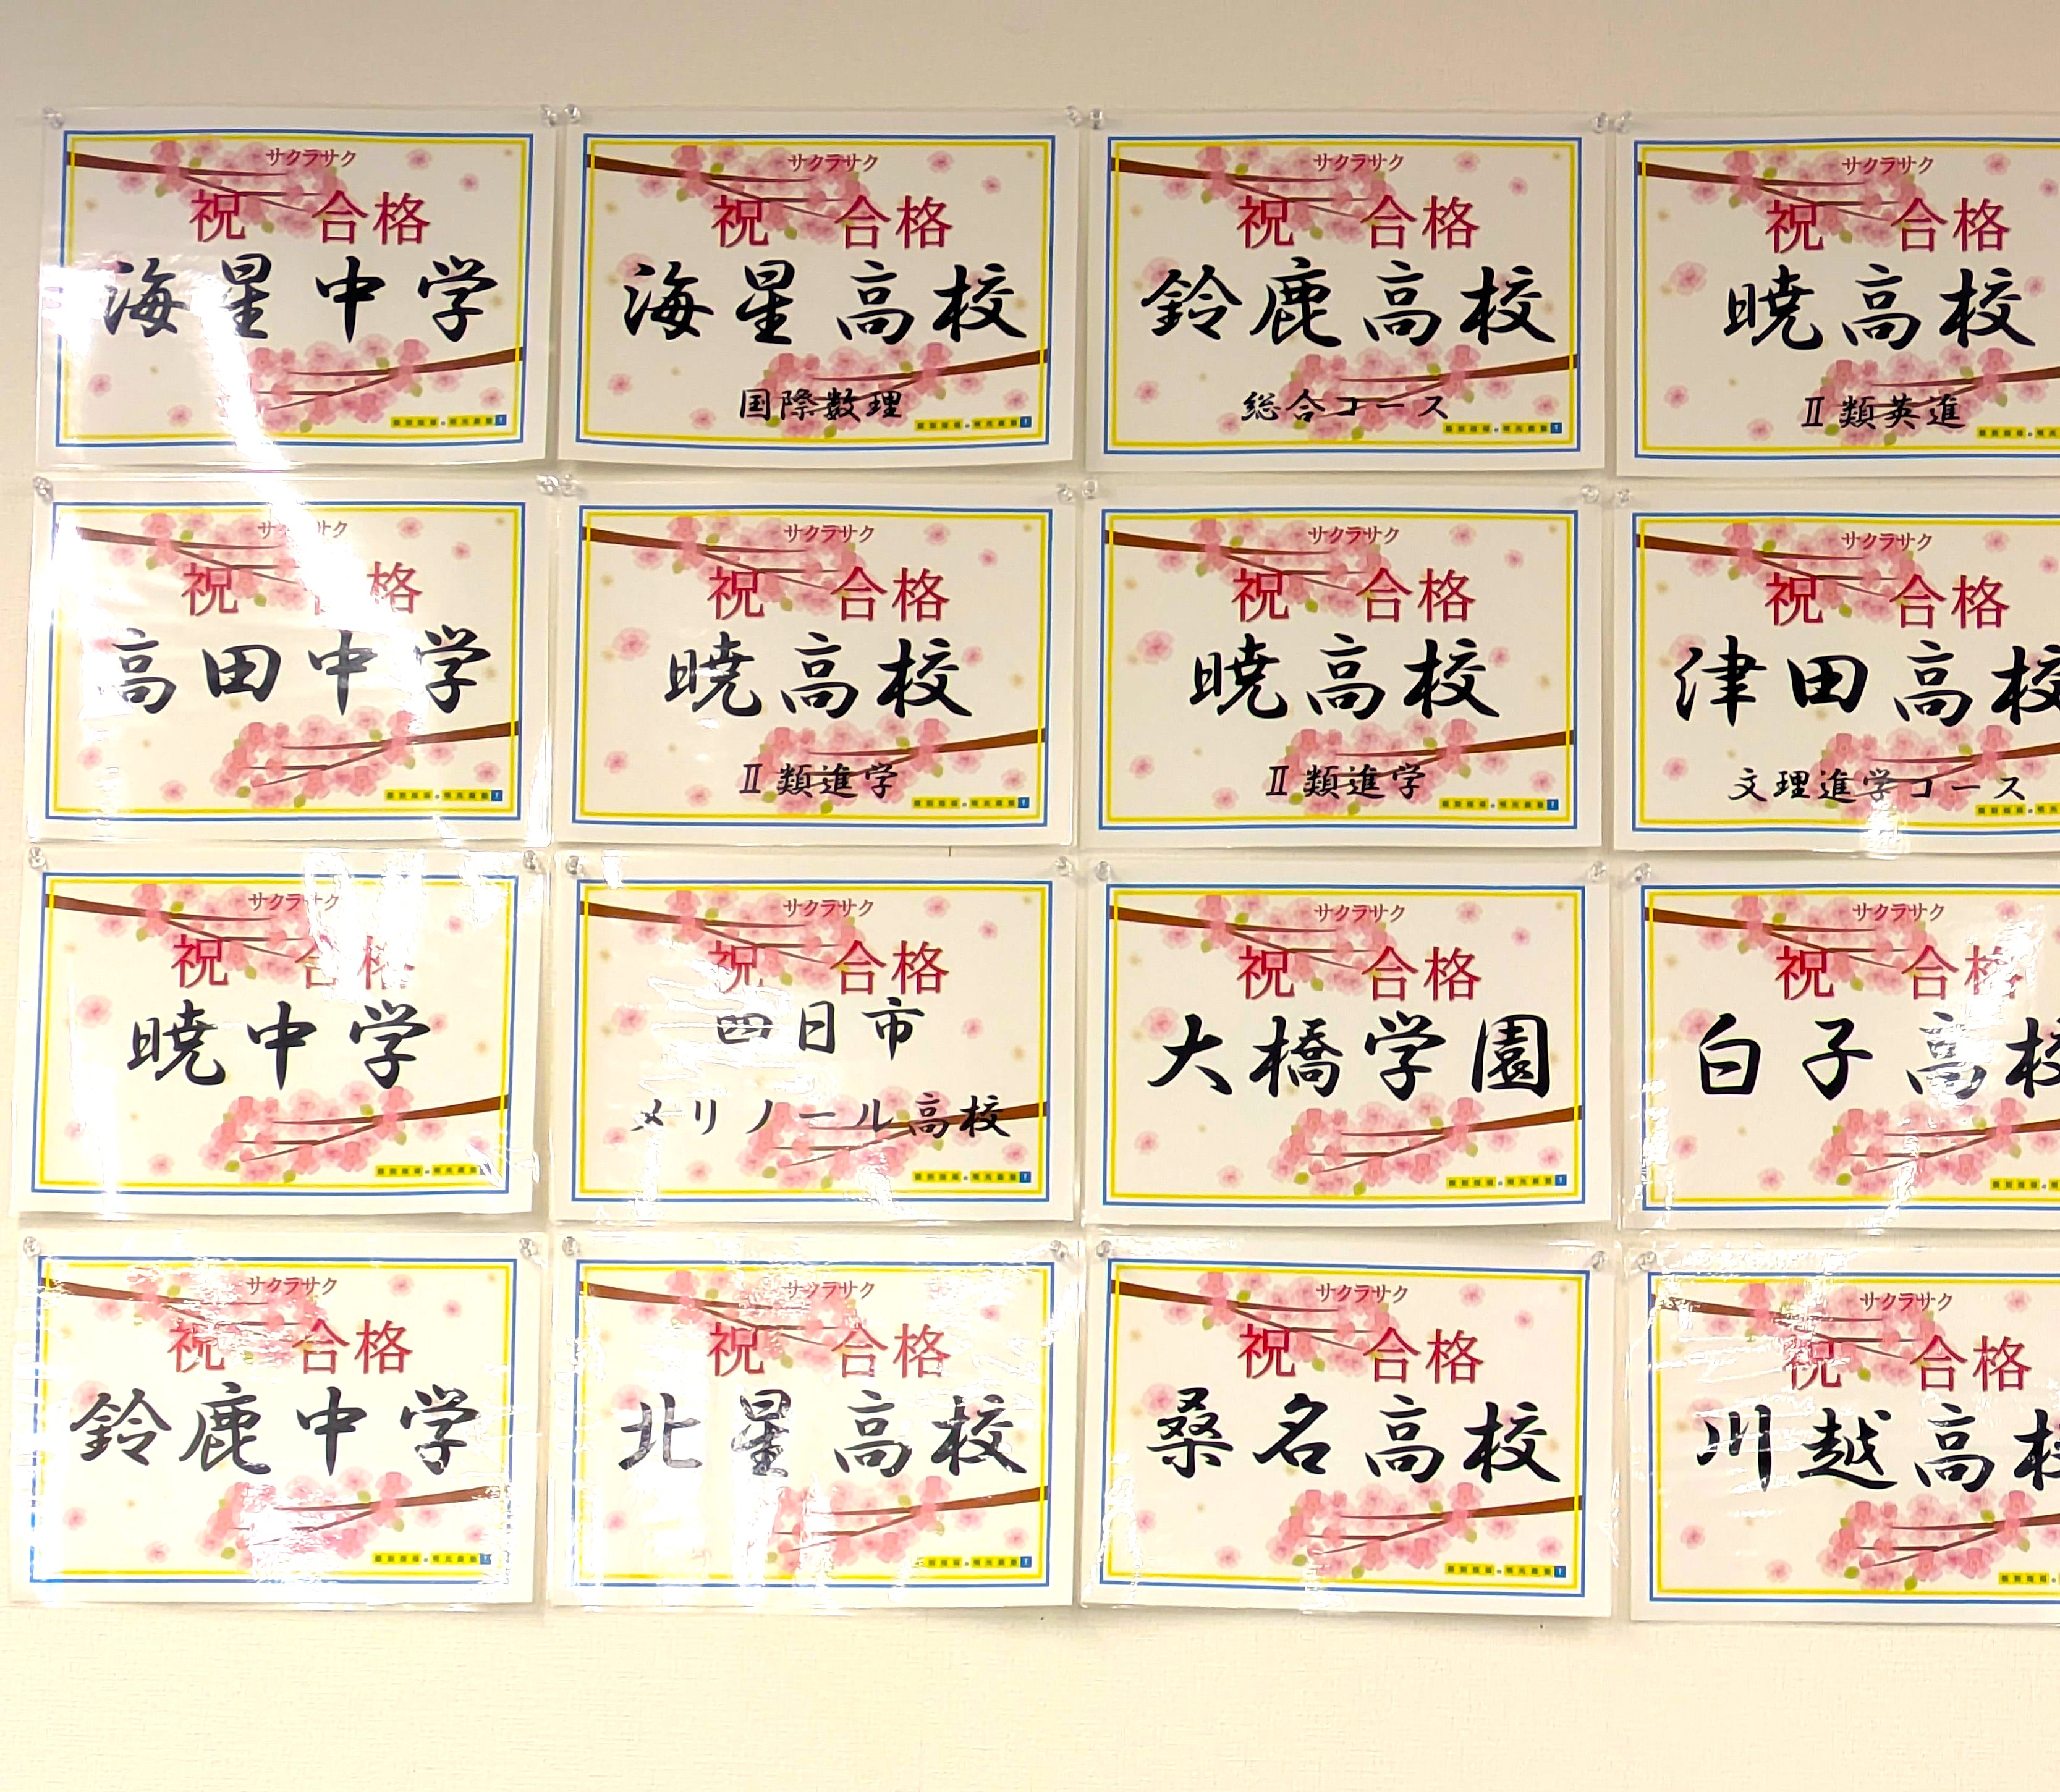 サクラサク
祝 合格
海星中学
サクラサク
祝 合格
海星高校
国際数理
サクラサク
祝 合格
鈴鹿高校
総合コース
サクラサク
祝 合格
暁高校
Ⅱ類英進
サクラサク
祝 合格
高田中学
サクラサク
祝 合格
暁高校
Ⅱ類進学
サクラサク
祝 合格
暁高校
Ⅱ類進学
サクラサク
祝 合格
津田高校
文理進学コース
サクラサク
祝 合格
暁中学
サクラサク
祝 合格
四日市
メリノール高校
サクラサク
祝 合格
大橋学園
サクラサク
祝 合格
白子高校
サクラサク
祝 合格
鈴鹿中学
サクラサク
祝 合格
北星高校
サクラサク
祝 合格
桑名高校
サクラサク
祝 合格
川越高校